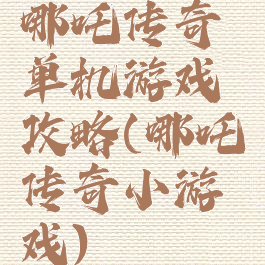 哪吒传奇
单机游戏
攻略(哪吒
传奇小游
戏)